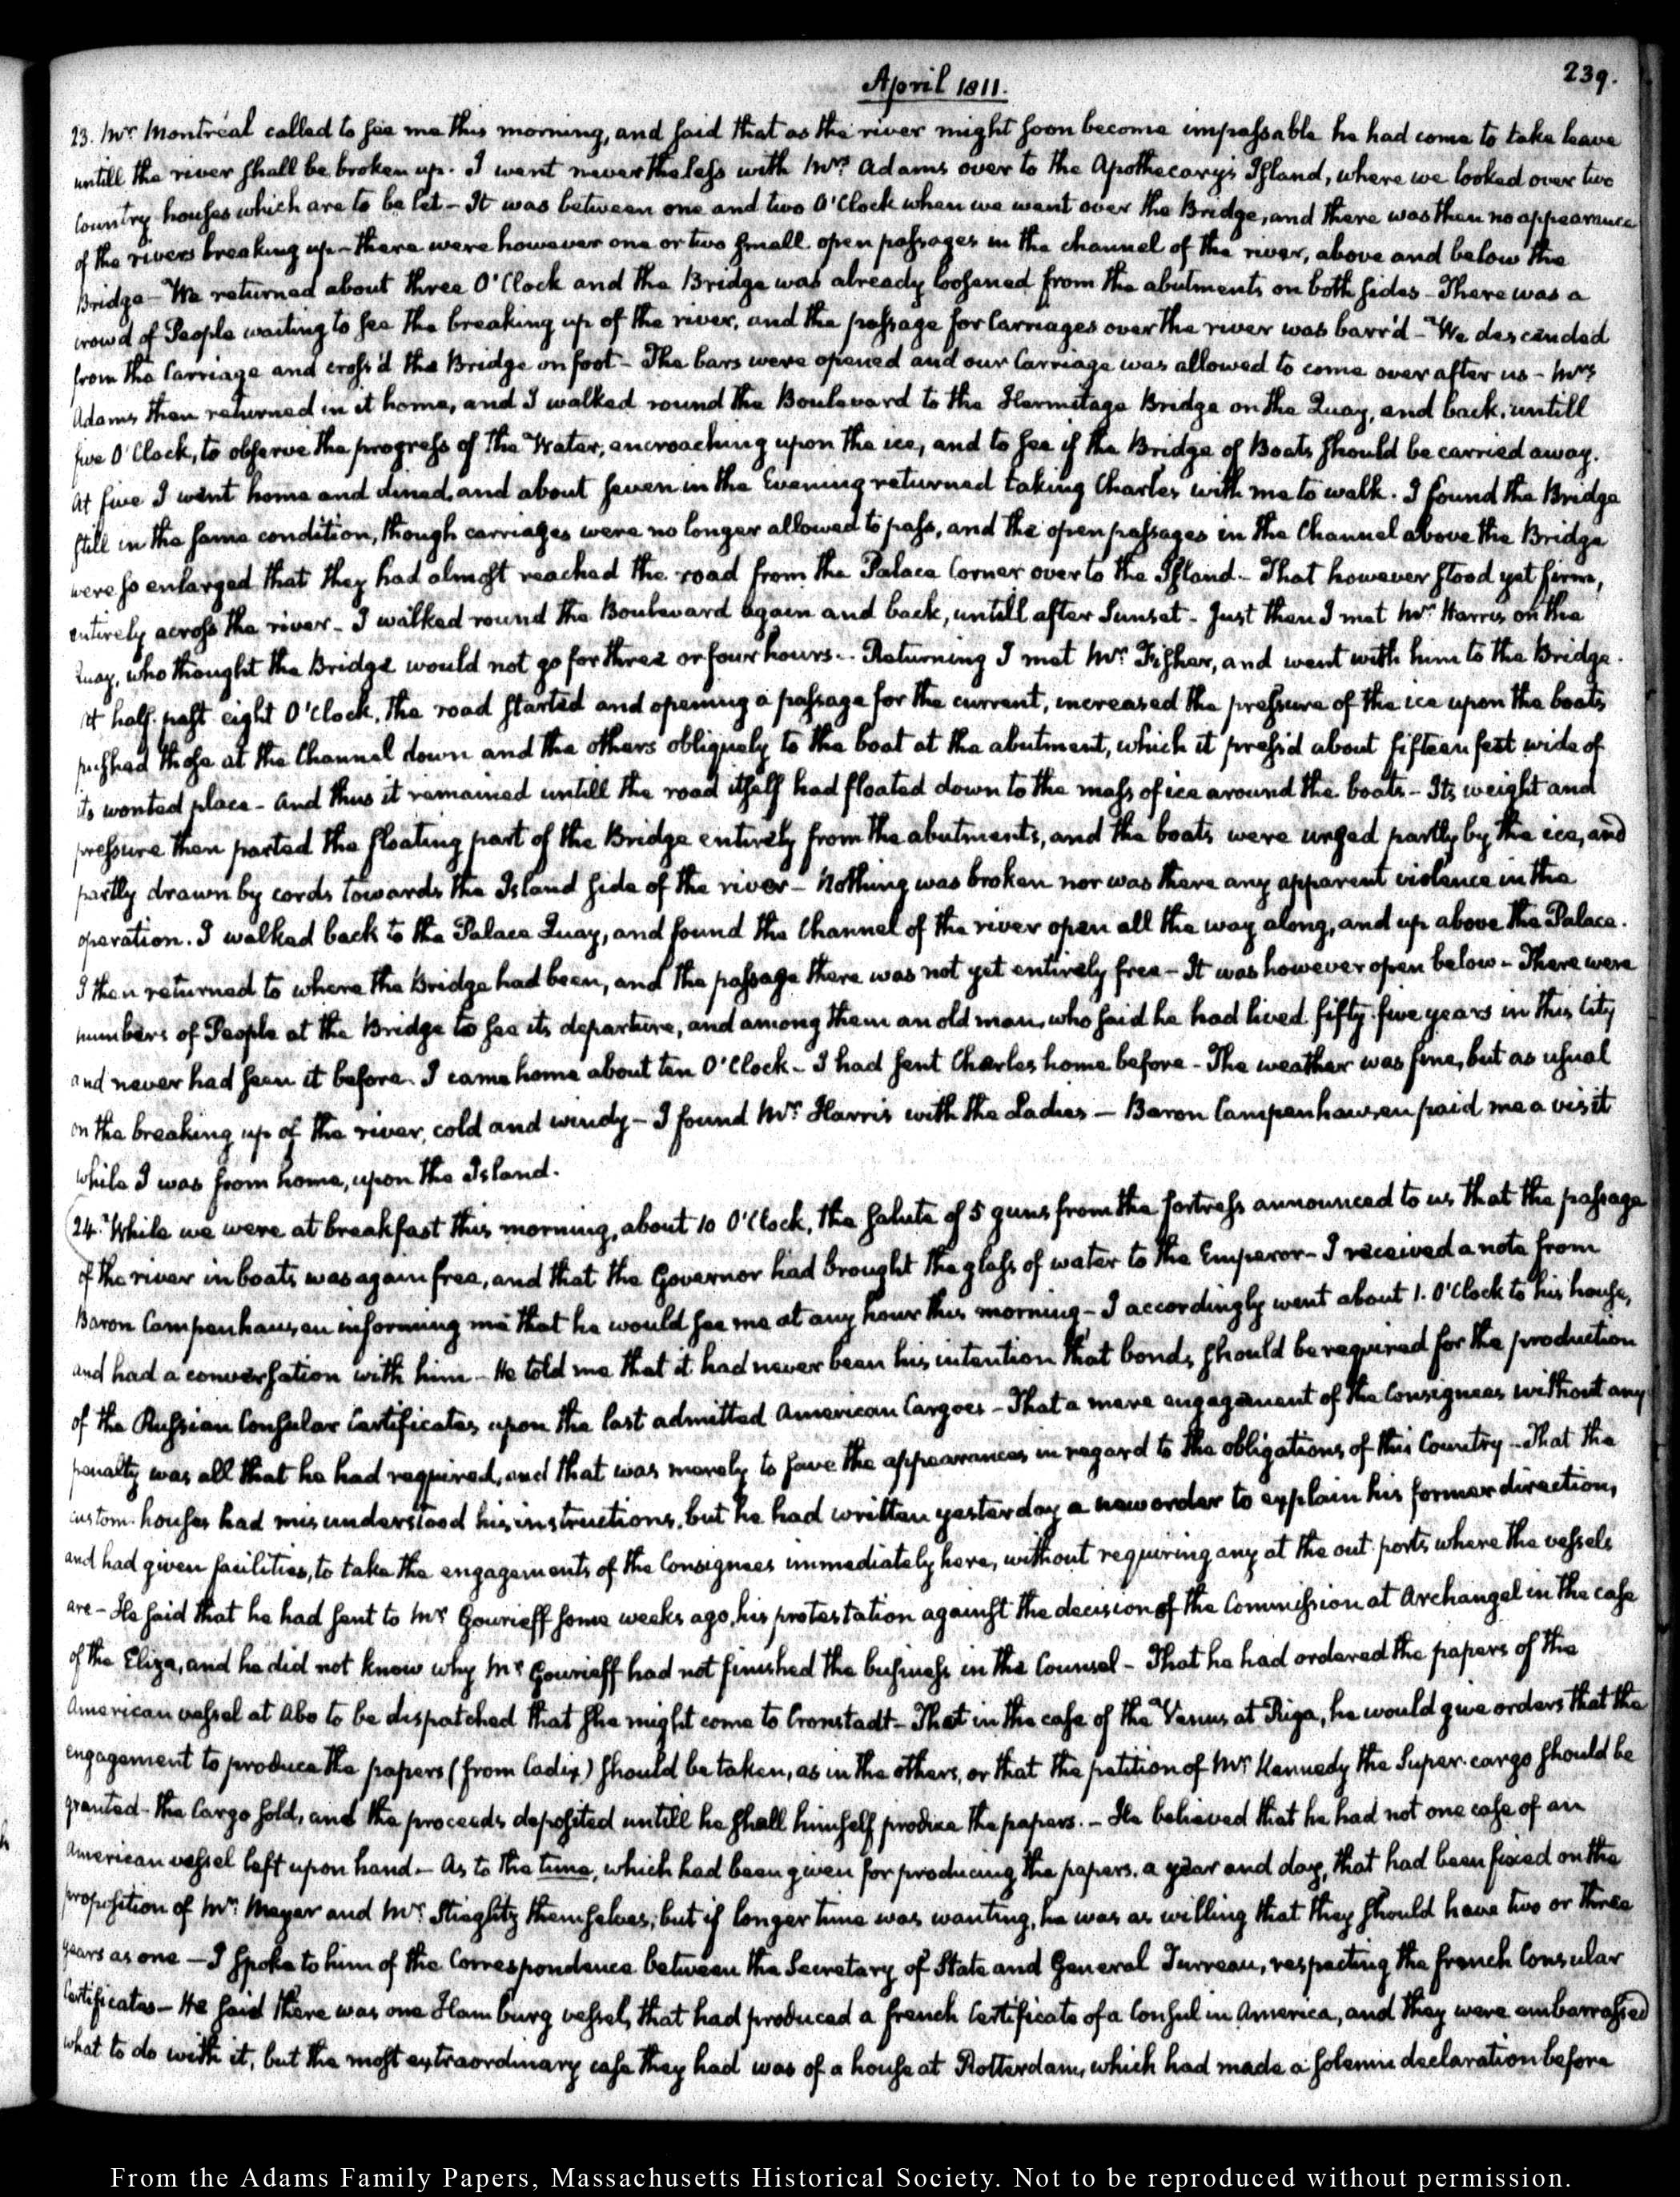 April 1811.
239.
23. Mr Montréal called to see me this morning, and said that as the river might soon become impassable he had come to take leave
untill the river shall be broken up. I went nevertheless with Mrs Adams over to the Apothecary's Island, where we looked over two
Country houses which are to be let - It was between one and two O'Clock when we went over the Bridge, and there was then no appearance
of the rivers breaking up - there were however one or two small open passages in the channel of the river, above and below the
Bridge - We returned about three O'Clock and the Bridge was already loosened from the abutments on both sides - There was a
crowd of People waiting to see the breaking up of the river, and the passage for Carriages over the river was barr'd - We descended
from the Carriage and cross'd the Bridge on foot - The bars were opened and our Carriage was allowed to come over after us - Mrs
Adams then returned in it home, and I walked round the Boulevard to the Hermitage Bridge on the Quay, and back, untill
five O'Clock, to observe the progress of the Water, encroaching upon the ice, and to see if the Bridge of Boats should be carried away.
At five I went home and dined, and about seven in the Evening returned taking Charles with me to walk. I found the Bridge
still in the same condition, though carriages were no longer allowed to pass, and the open passages in the Channel above the Bridge
were so enlarged that they had almost reached the road from the Palace Corner over to the Island - That however stood yet firm,
entirely across the river - I walked round the Boulevard again and back, untill after Sunset - Just then I met Mr Harris on the
Quay, who thought the Bridge would not go for three or four hours. - Returning I met Mr Fisher, and went with him to the Bridge.
At half past eight O'Clock, the road started and opening a passage for the current, increased the pressure of the ice upon the boats
pushed those at the Channel down and the others obliquely to the boat at the abutment, which it press'd about fifteen feet wide of
its wonted place - And thus it remained untill the road itself had floated down to the mass of ice around the boats - Its weight and
pressure then parted the floating part of the Bridge entirely from the abutments, and the boats were urged partly by the ice, and
partly drawn by cords towards the Island side of the river - Nothing was broken nor was there any apparent violence in the
operation. I walked back to the Palace Quay, and found the Channel of the river open all the way along, and up above the Palace.
I then returned to where the Bridge had been, and the passage there was not yet entirely free - It was however open below - There were
numbers of People at the Bridge to see its departure, and among them an old man, who said he had lived fifty-five years in this City
and never had seen it before. I came home about ten O'Clock - I had sent Charles home before - The weather was fine, but as usual
on the breaking up of the river, cold and windy - I found Mr Harris with the Ladies - Baron Campenhausen paid me a visit
while I was from home, upon the Island.
24. While we were at breakfast this morning, about 10 O'Clock, the salute of 5 guns from the fortress announced to us that the passage
of the river in boats was again free, and that the Governor had brought the glass of water to the Emperor - I received a note from
Baron Campenhausen informing me that he would see me at any hour this morning - I accordingly went about 1. O'Clock to his house,
and had a conversation with him - He told me that it had never been his intention that bonds should be required for the production
of the Russian Consular Certificates upon the last admitted American Cargoes - That a mere engagement of the Consignees without any
penalty was all that he had required, and that was merely to save the appearances in regard to the obligations of this Country - That the
custom-houses had misunderstood his instructions, but he had written yesterday a new order to explain his former direction,
and had given facilities, to take the engagements of the Consignees immediately here, without requiring any at the out-ports where the vessels
are - He said that he had sent to Mr Gourieff some weeks ago, his protestation against the decision of the Commission at Archangel in the case
of the Eliza, and he did not know why Mr Gourieff had not finished the business in the Counsel - That he had ordered the papers of the
American vessel at Abo to be dispatched that she might come to Cronstadt - That in the case of the Venus at Riga, he would give orders that the
engagement to produce the papers (from Cadix) should be taken, as in the others, or that the petition of Mr Kennedy the Super-cargo should be
granted - the Cargo sold, and the proceeds deposited untill he shall himself produce the papers. - He believed that he had not one case of an
American vessel left upon hand - As to the time, which had been given for producing the papers, a year and day, that had been fixed on the
proposition of Mr Meyer and Mr Stieglitz themselves; but if longer time was wanting, he was as willing that they should have two or three
years as one - I spoke to him of the Correspondence between the Secretary of State and General Turreau, respecting the french Consular
Certificates - He said there was one Hamburg vessel, that had produced a french Certificate of a Consul in America, and they were embarrassed
what to do with it, but the most extraordinary case they had was of a house at Rotterdam, which had made a solemn declaration before
From the Adams Family Papers, Massachusetts Historical Society. Not to be reproduced without permission.